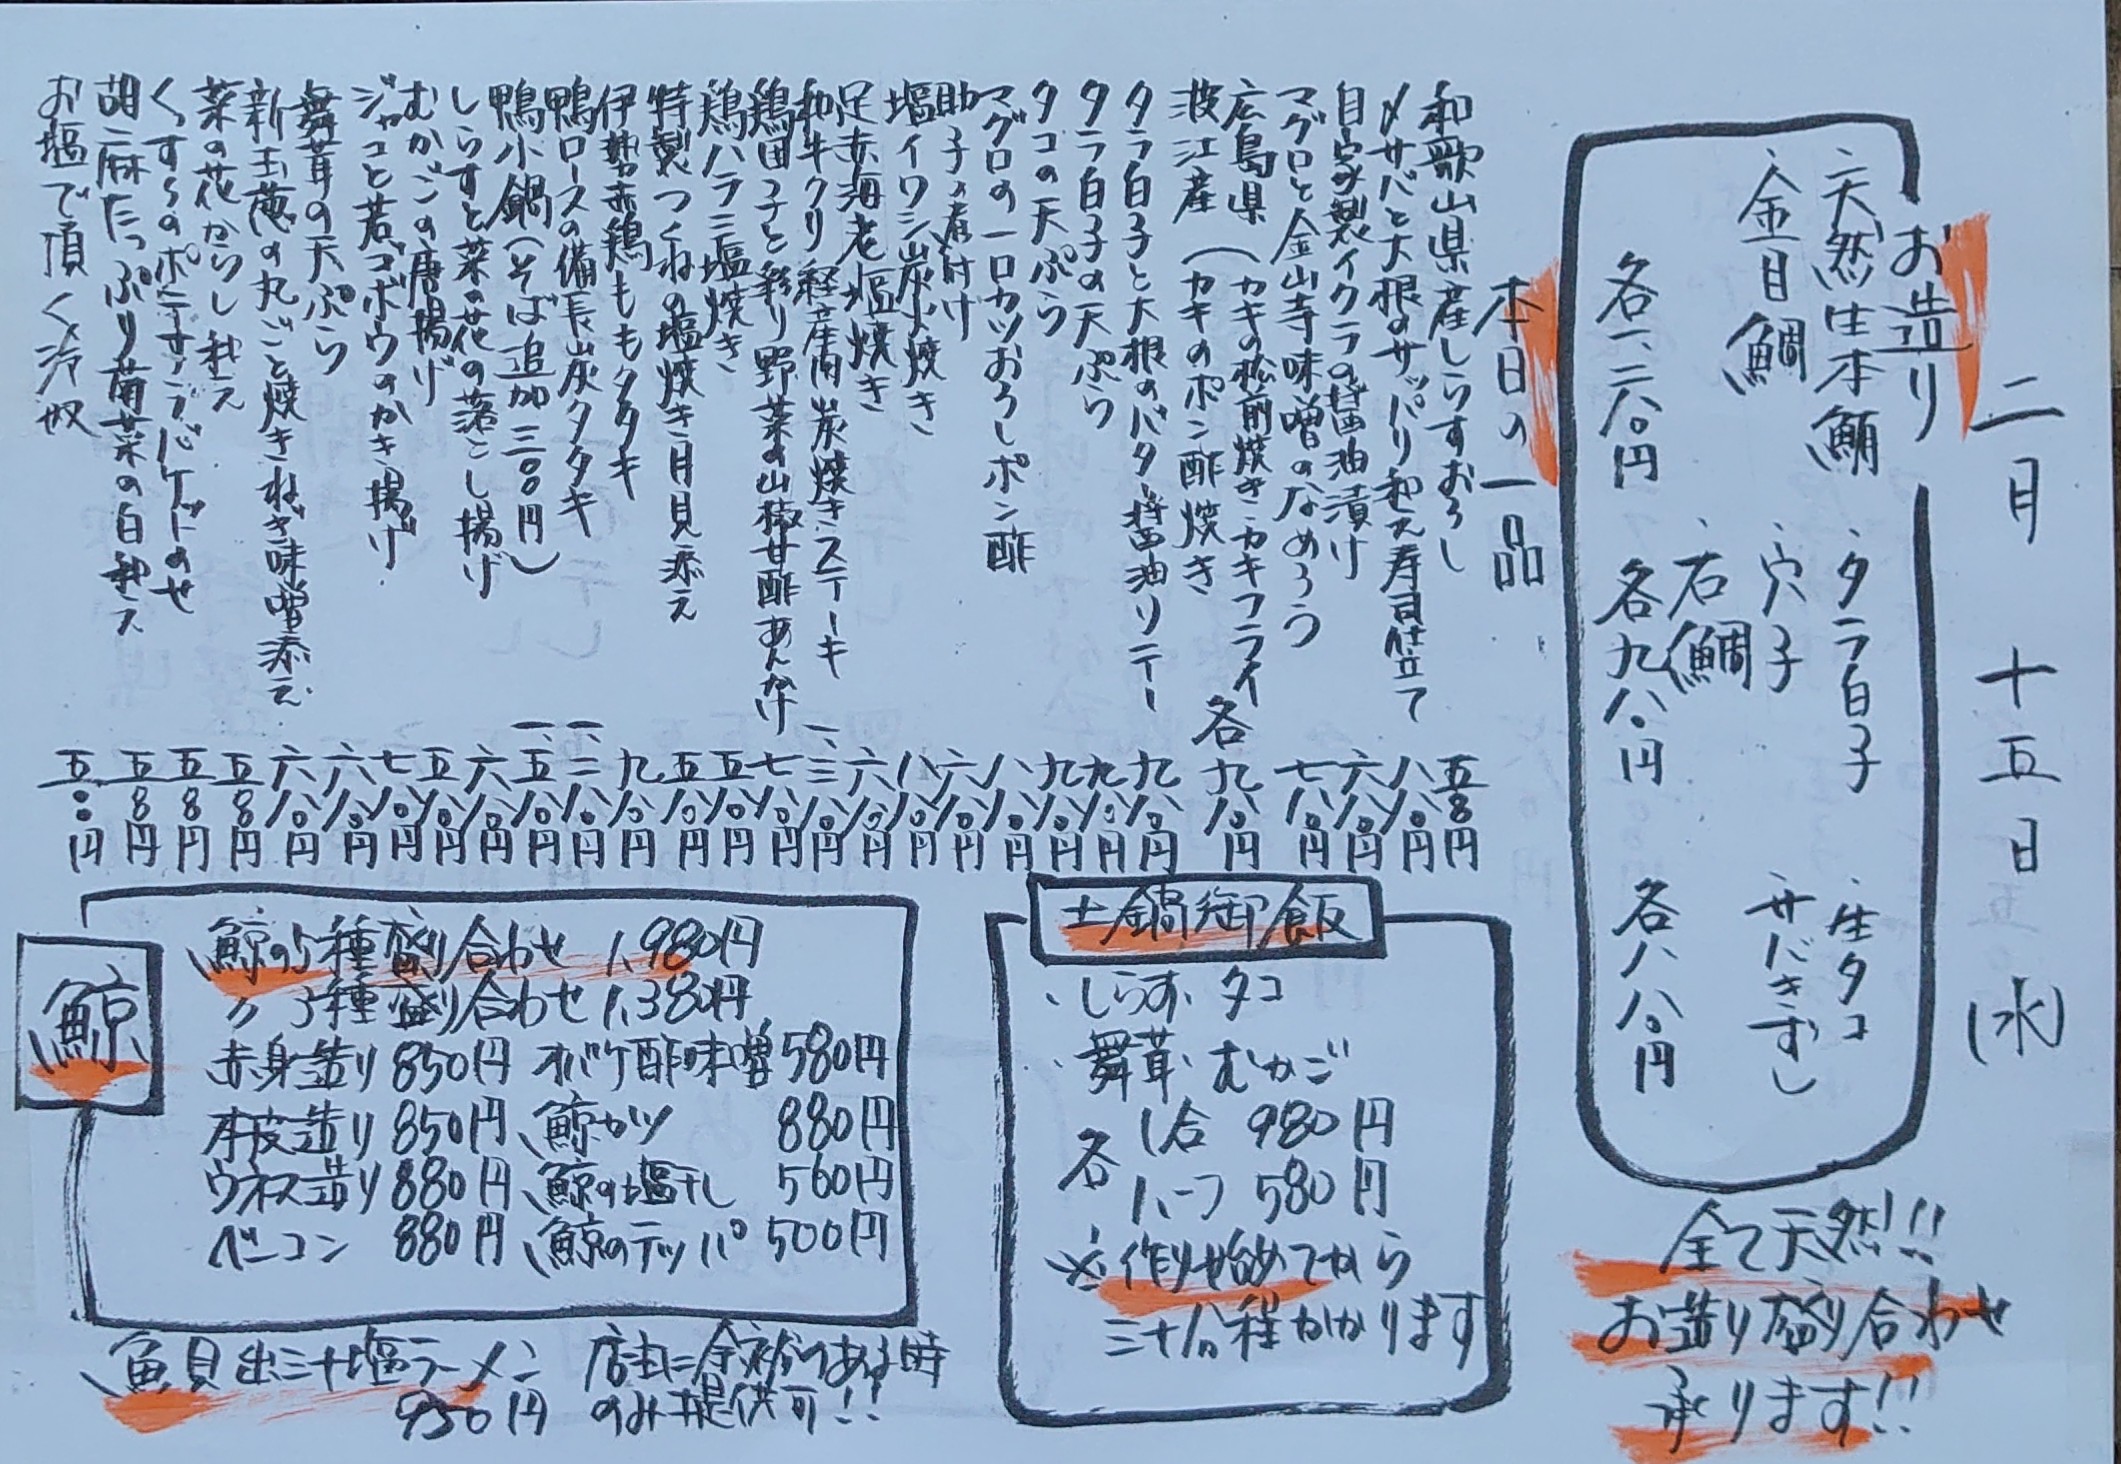 二月十五日(水)
お造り
・天然生本鮪 ・タラ白子 ・生タコ
・金目鯛 ・穴子 ・サバきずし
・石鯛
各一、二八〇円 各九八〇円 各八八〇円
全て天然!!
お造り盛り合わせ
承ります!!
本日の一品
和歌山県産しらすおろし 五八〇円
〆サバと大根のサッパリ和え寿司仕立て 八八〇円
自家製イクラの醤油漬け 六八〇円
マグロと金山寺味噌のなめろう 七八〇円
広島県 (カキの松前焼き・カキフライ
波江産 (カキのポン酢焼き 各九八〇円
タラ白子と大根のバター醤油ソテー 九八〇円
タラ白子の天ぷら 九八〇円
タコの天ぷら 九八〇円
マグロの一口カツおろしポン酢 八八〇円
助子の煮付け 六八〇円
塩イワシ炭火焼き 八八〇円
足赤海老塩焼き 六八〇円
和牛クリ 経産肉炭焼きステーキ 一、三八〇円
鶏団子と彩り野菜の山椒甘酢あんかけ 七八〇円
鶏ハラミ塩焼き 五八〇円
特製つくねの塩焼き月見添え 五八〇円
伊勢赤鶏ももタタキ 九八〇円
鴨ロースの備長炭タタキ 一、二八〇円
鴨小鍋(そば追加三〇〇円) 一、五八〇円
しらすと菜の花の落とし揚げ 六八〇円
むかごの唐揚げ 五八〇円
ジャコと若ゴボウのかき揚げ 七八〇円
舞茸の天ぷら 六八〇円
新玉葱の丸ごと焼きねぎ味噌添え 六八〇円
菜の花からし和え 五八〇円
くすらのポテサラバケットのせ 五八〇円
胡麻たっぷり菊菜の白和え 五八〇円
お塩で頂く冷奴 五〇〇円
土鍋御飯
・しらす・タコ
・舞茸・むかご
各 1合 980円
ハーフ 580円
※作り始めてから
三十分程かかります
鯨
鯨の5種盛り合わせ 1,980円
〃 3種盛り合わせ 1,380円
赤身造り 850円 オバケ酢味噌 580円
本皮造り 850円 鯨カツ 880円
ウネス造り 880円 鯨の塩干し 560円
ベーコン 880円 鯨のテッパ 500円
魚貝出汁塩ラーメン 店主に余裕のある時
950円 のみ提供可!!